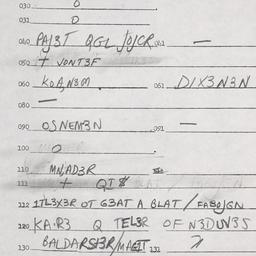 030 O
031 O
040 PAJ3T QGL JOJCR 041 —
050 + VONT3F
060 KOA,N3M 061 DIX3N3N
080 —
090 OSNEM3N 091 —
100 O
110 MN,AD3R
111 + QT$
112 1TL3X3R OT G3AT A BLAT / FABOJGN
120 KA.R3 Q TEL3R OF N3DUV3S
130 BALDARS3R/MAGIT 131